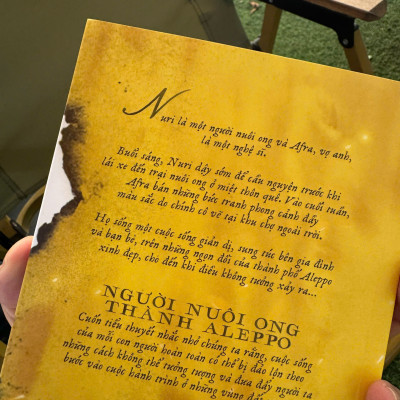 Nuri là một người nuôi ong và Afra, vợ anh,
là một nghệ sĩ.
Buổi sáng, Nuri dậy sớm để cầu nguyện trước khi
lái xe đến trại nuôi ong ở miệt thôn quê. Vào cuối tuần,
Afra bán những bức tranh phong cảnh đầy
màu sắc do chính cô vẽ tại khu chợ ngoài trời.
Họ sống một cuộc sống giản dị, sung túc bên gia đình
và bạn bè, trên những ngọn đồi của thành phố Aleppo
xinh đẹp, cho đến khi điều không tưởng xảy ra...
NGƯỜI NUÔI ONG
THÀNH ALEPPO
Cuốn tiểu thuyết nhắc nhở chúng ta rằng, cuộc sống
của mỗi con người hoàn toàn có thể bị đảo lộn theo
những cách không thể tưởng tượng và đưa đẩy người ta
bước vào cuộc hành trình ở những vùng đất